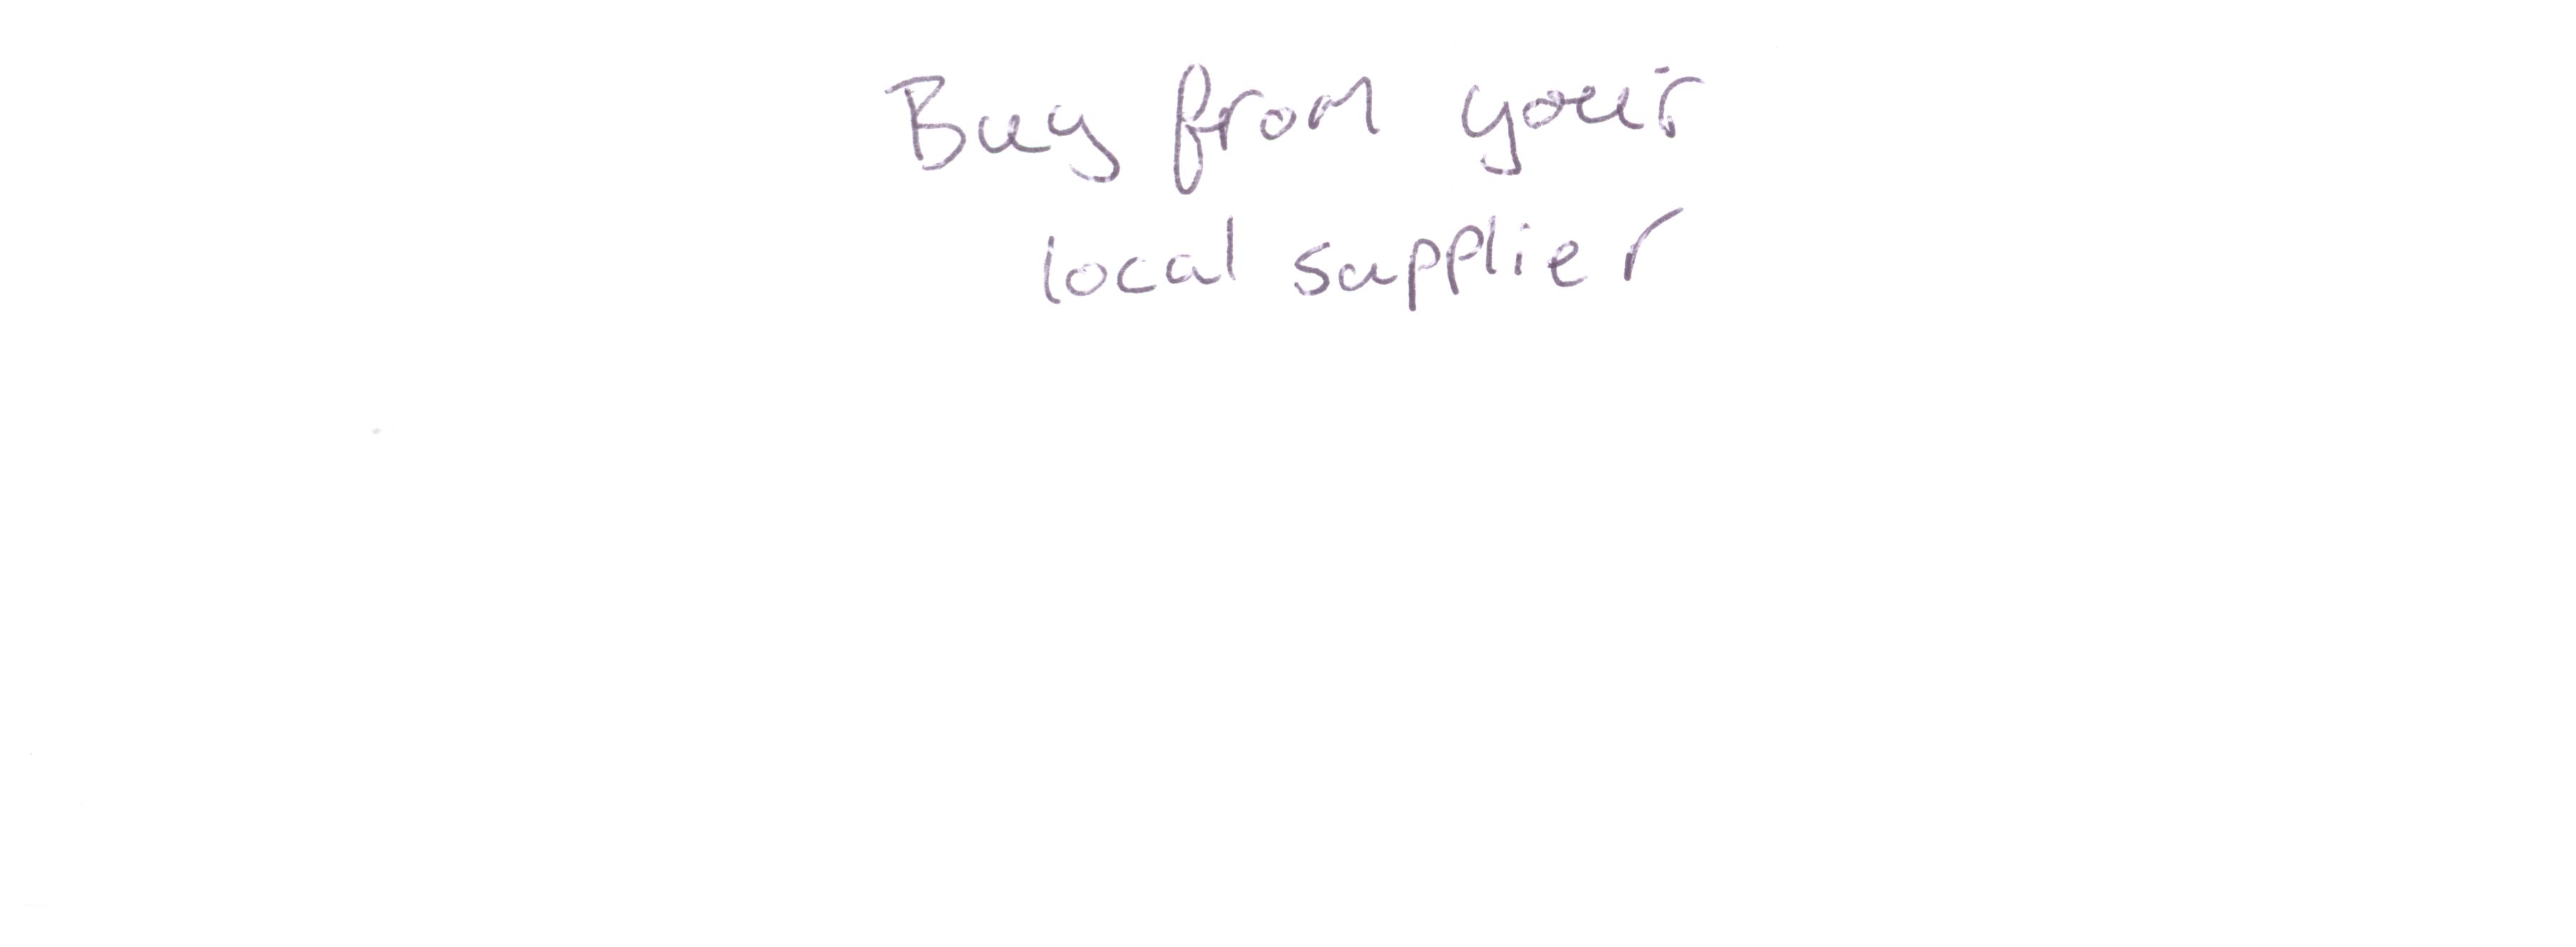 Buy from your
local supplier